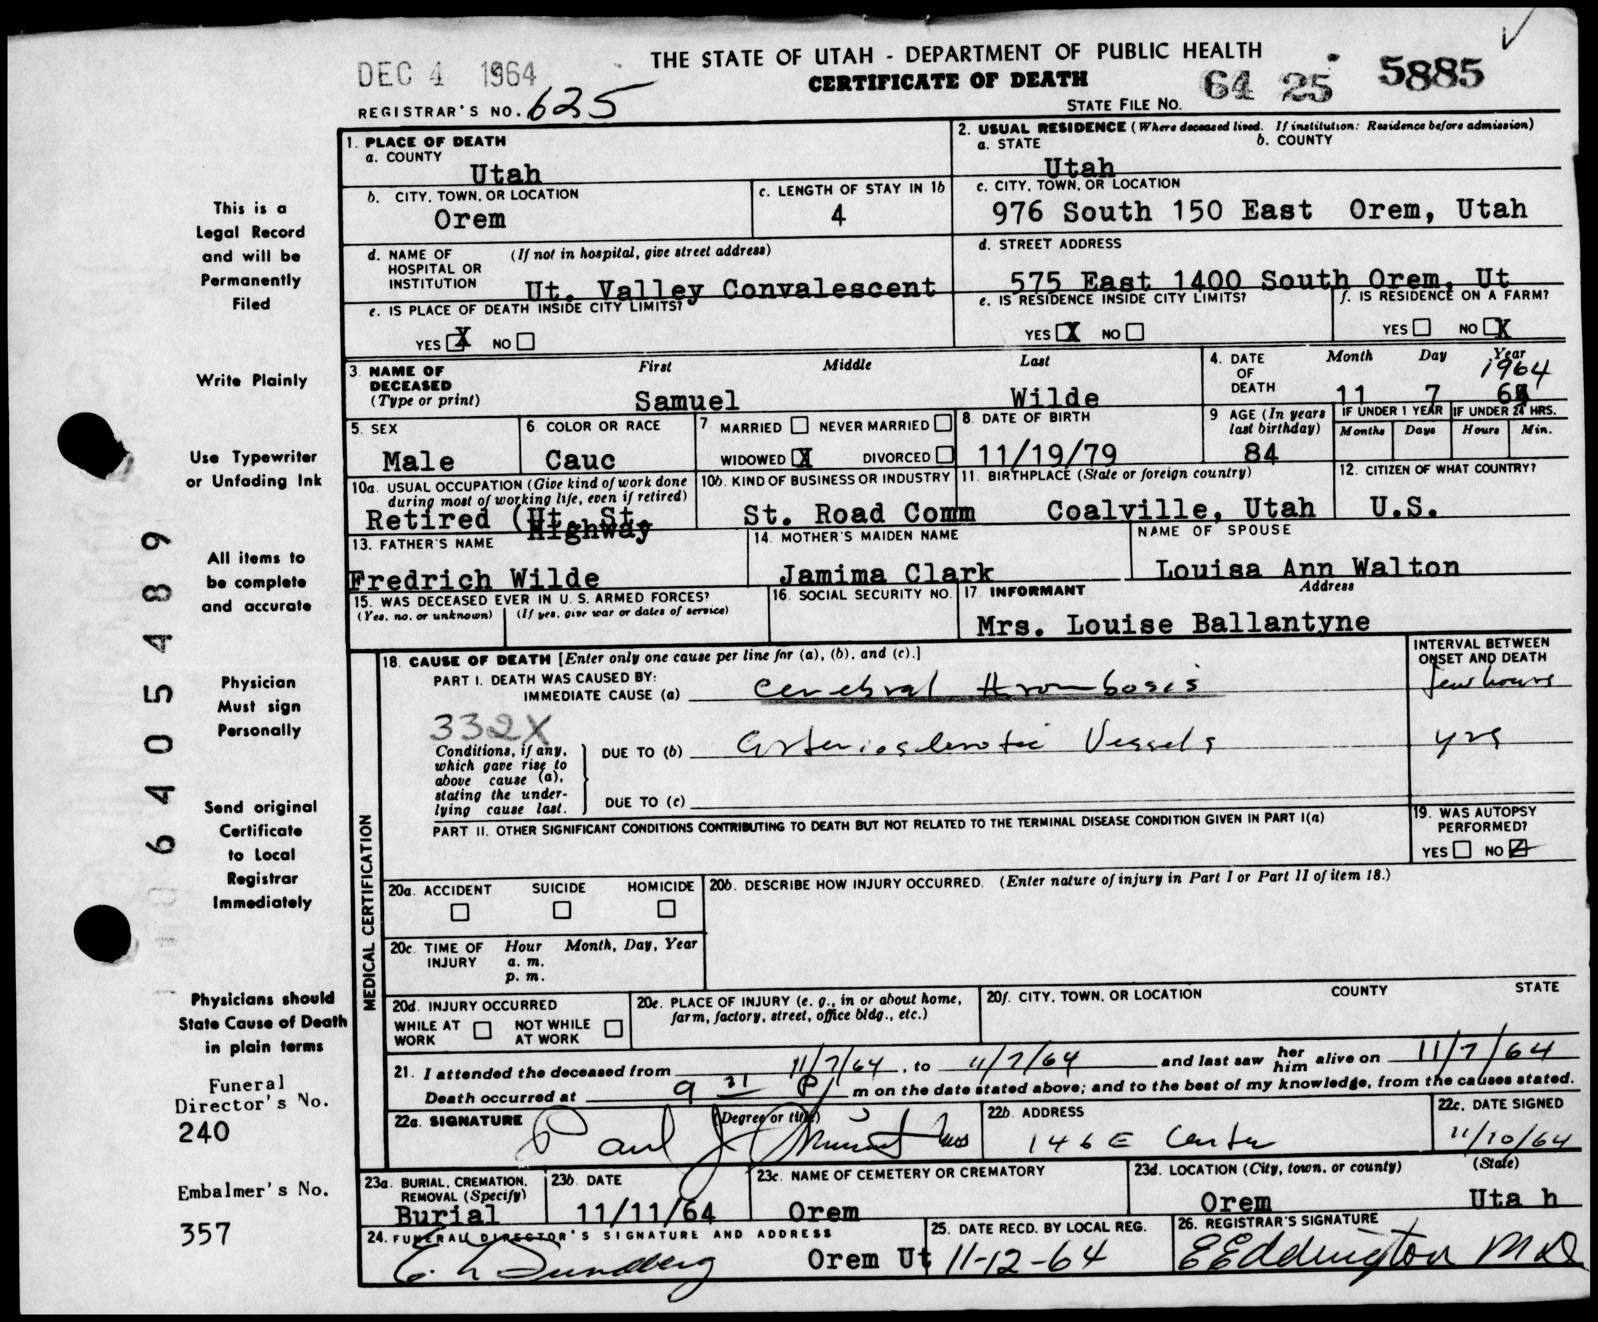 THE STATE OF UTAH - DEPARTMENT OF PUBLIC HEALTH
DEC 4 1964
CERTIFICATE OF DEATH
64 25 5885
REGISTRAR'S NO. 625
STATE FILE NO.
1. PLACE OF DEATH
a. COUNTY
Utah
2. USUAL RESIDENCE (Where deceased lived. If institution: Residence before admission)
a. STATE b. COUNTY
Utah
b. CITY, TOWN, OR LOCATION
Orem
c. LENGTH OF STAY IN 1b
4
c. CITY, TOWN, OR LOCATION
976 South 150 East Orem, Utah
d. NAME OF HOSPITAL OR INSTITUTION (If not in hospital, give street address)
Ut. Valley Convalescent
d. STREET ADDRESS
575 East 1400 South Orem, Ut
e. IS PLACE OF DEATH INSIDE CITY LIMITS?
YES X NO
e. IS RESIDENCE INSIDE CITY LIMITS?
YES X NO
f. IS RESIDENCE ON A FARM?
YES NO X
3. NAME OF DECEASED (Type or print)
First Middle Last
Samuel Wilde
4. DATE OF DEATH
Month Day Year
1964
11 7
5. SEX
Male
6. COLOR OR RACE
Cauc
7 MARRIED NEVER MARRIED
WIDOWED X DIVORCED
8. DATE OF BIRTH
11/19/79
9 AGE (In years last birthday)
84
IF UNDER 1 YEAR
Months Days
IF UNDER 24 HRS.
Hours Min.
10a. USUAL OCCUPATION (Give kind of work done during most of working life, even if retired)
Retired (Ut. St.
Highway
10b. KIND OF BUSINESS OR INDUSTRY
St. Road Comm
11. BIRTHPLACE (State or foreign country)
Coalville, Utah
12. CITIZEN OF WHAT COUNTRY?
U.S.
13. FATHER'S NAME
Fredrich Wilde
14. MOTHER'S MAIDEN NAME
Jamima Clark
NAME OF SPOUSE
Louisa Ann Walton
15. WAS DECEASED EVER IN U. S. ARMED FORCES?
(Yes, no, or unknown) (If yes, give war or dates of service)
16. SOCIAL SECURITY NO.
17. INFORMANT Address
Mrs. Louise Ballantyne
18. CAUSE OF DEATH [Enter only one cause per line for (a), (b), and (c).]
INTERVAL BETWEEN ONSET AND DEATH
PART I. DEATH WAS CAUSED BY:
IMMEDIATE CAUSE (a) Cerebral thrombosis few hours
332X
Conditions, if any, which gave rise to above cause (a), stating the underlying cause last.
DUE TO (b) Arteriosclerotic Vessels yrs
DUE TO (c)
PART II. OTHER SIGNIFICANT CONDITIONS CONTRIBUTING TO DEATH BUT NOT RELATED TO THE TERMINAL DISEASE CONDITION GIVEN IN PART I(a)
19. WAS AUTOPSY PERFORMED?
YES NO
MEDICAL CERTIFICATION
20a. ACCIDENT SUICIDE HOMICIDE
20b. DESCRIBE HOW INJURY OCCURRED. (Enter nature of injury in Part I or Part II of item 18.)
20c. TIME OF INJURY Hour Month, Day, Year
a. m.
p. m.
20d. INJURY OCCURRED
WHILE AT WORK NOT WHILE AT WORK
20e. PLACE OF INJURY (e. g., in or about home, farm, factory, street, office bldg., etc.)
20f. CITY, TOWN, OR LOCATION COUNTY STATE
21. I attended the deceased from 11/7/64, to 11/7/64 and last saw her him alive on 11/7/64
Death occurred at 9 31 P m on the date stated above; and to the best of my knowledge, from the causes stated.
22a. SIGNATURE (Degree or title)
Paul J
22b. ADDRESS
146 E Center
22c. DATE SIGNED
11/10/64
23a. BURIAL, CREMATION, REMOVAL (Specify)
Burial
23b. DATE
11/11/64
23c. NAME OF CEMETERY OR CREMATORY
Orem
23d. LOCATION (City, town, or county) (State)
Orem Uta h
24. FUNERAL DIRECTOR'S SIGNATURE AND ADDRESS
Sundberg Orem Ut
25. DATE RECD. BY LOCAL REG.
11-12-64
26. REGISTRAR'S SIGNATURE
E E Eddington M D
This is a
Legal Record
and will be
Permanently
Filed
Write Plainly
Use Typewriter
or Unfading Ink
All items to
be complete
and accurate
Physician
Must sign
Personally
Send original
Certificate
to Local
Registrar
Immediately
Physicians should
State Cause of Death
in plain terms
Funeral
Director's No.
240
Embalmer's No.
357
64054 89